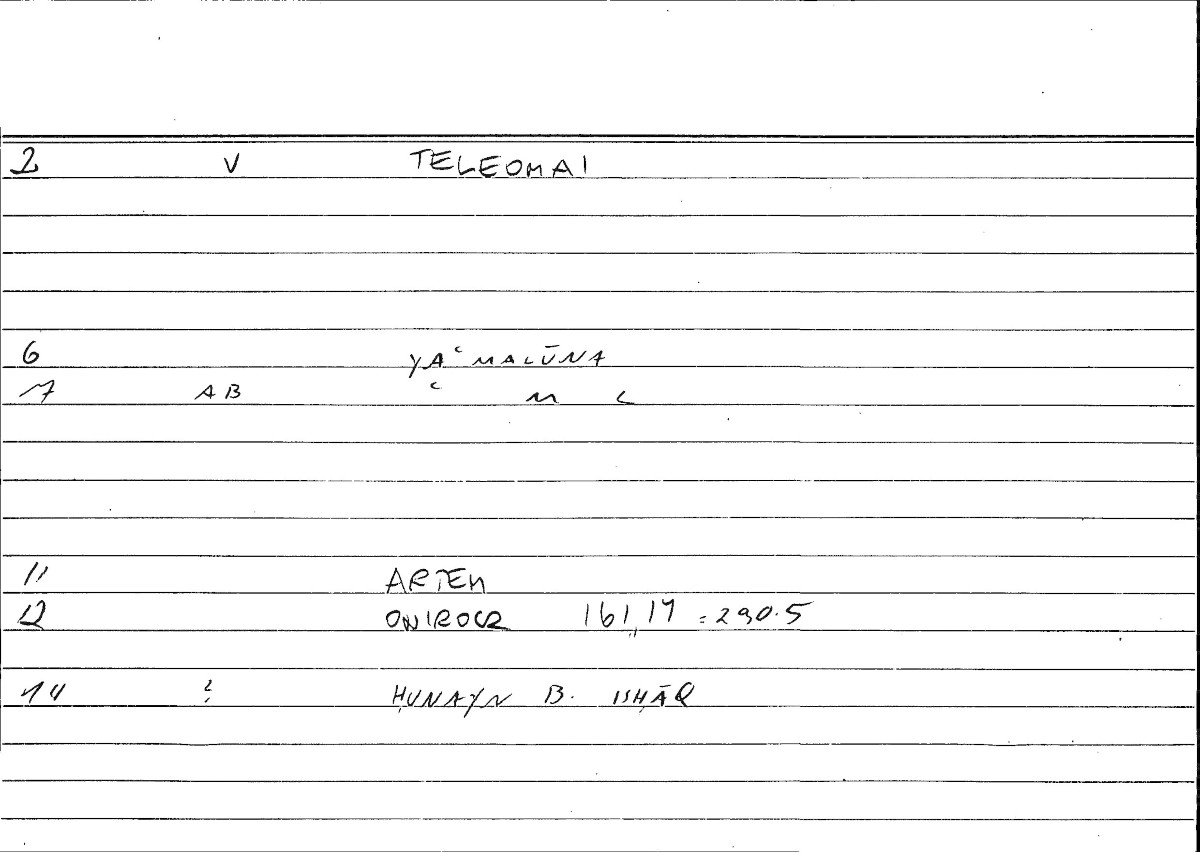 2 V TELEOMAI
6 YAʿMALŪNA
7 AB ʿ M L
11 ARTEM
12 ONIROCR 161,17 = 290.5
14 ? ḤUNAYN B. ISḤĀQ